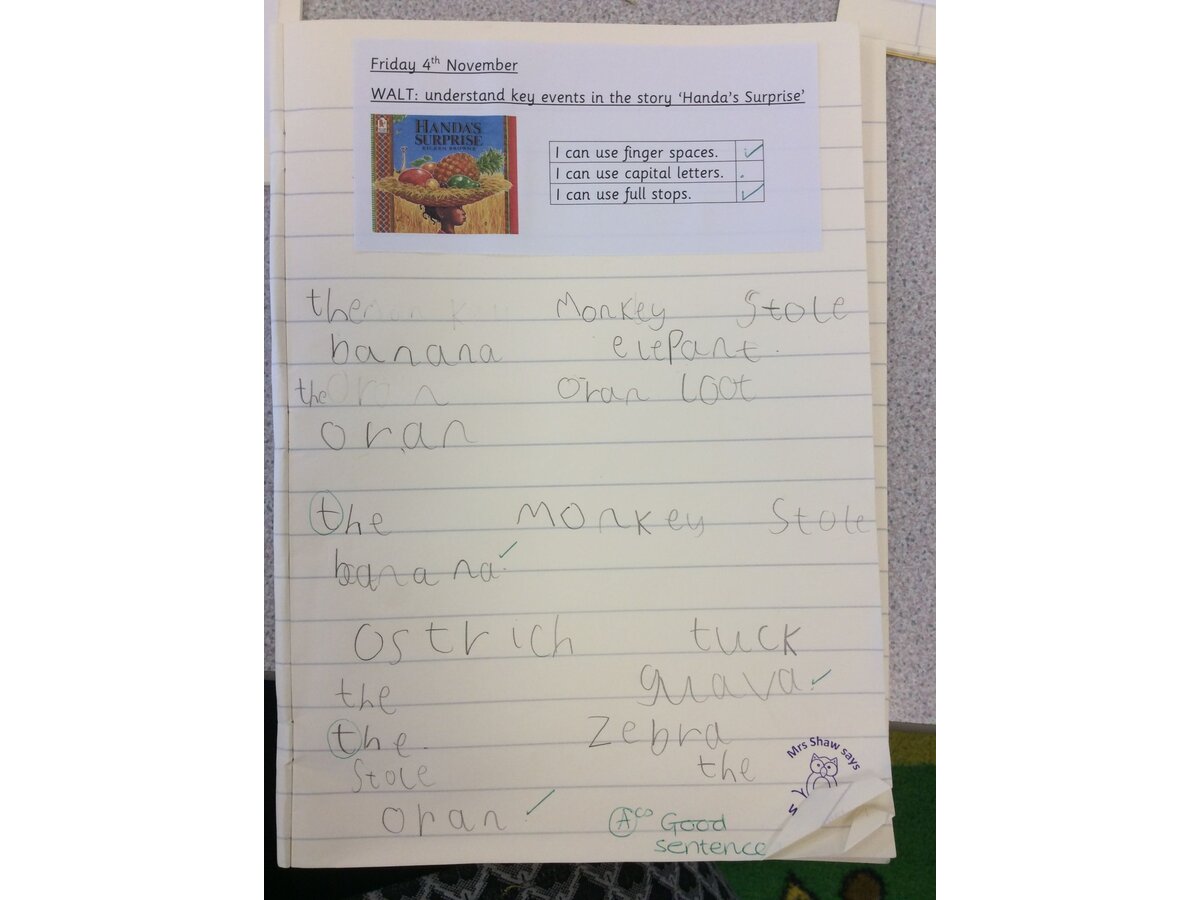 Friday 4th November
WALT: understand key events in the story ‘Handa’s Surprise’
HANDA'S
SURPRISE
EILEEN BROWNE
I can use finger spaces.
I can use capital letters.
I can use full stops.
the Monkey Stole
banana elepant.
the Oran loot
oran
the Monkey Stole
banana.
ostrich tuck
the guava.
the. Zebra
Stole the
oran.
Mrs Shaw says
A Good
sentence